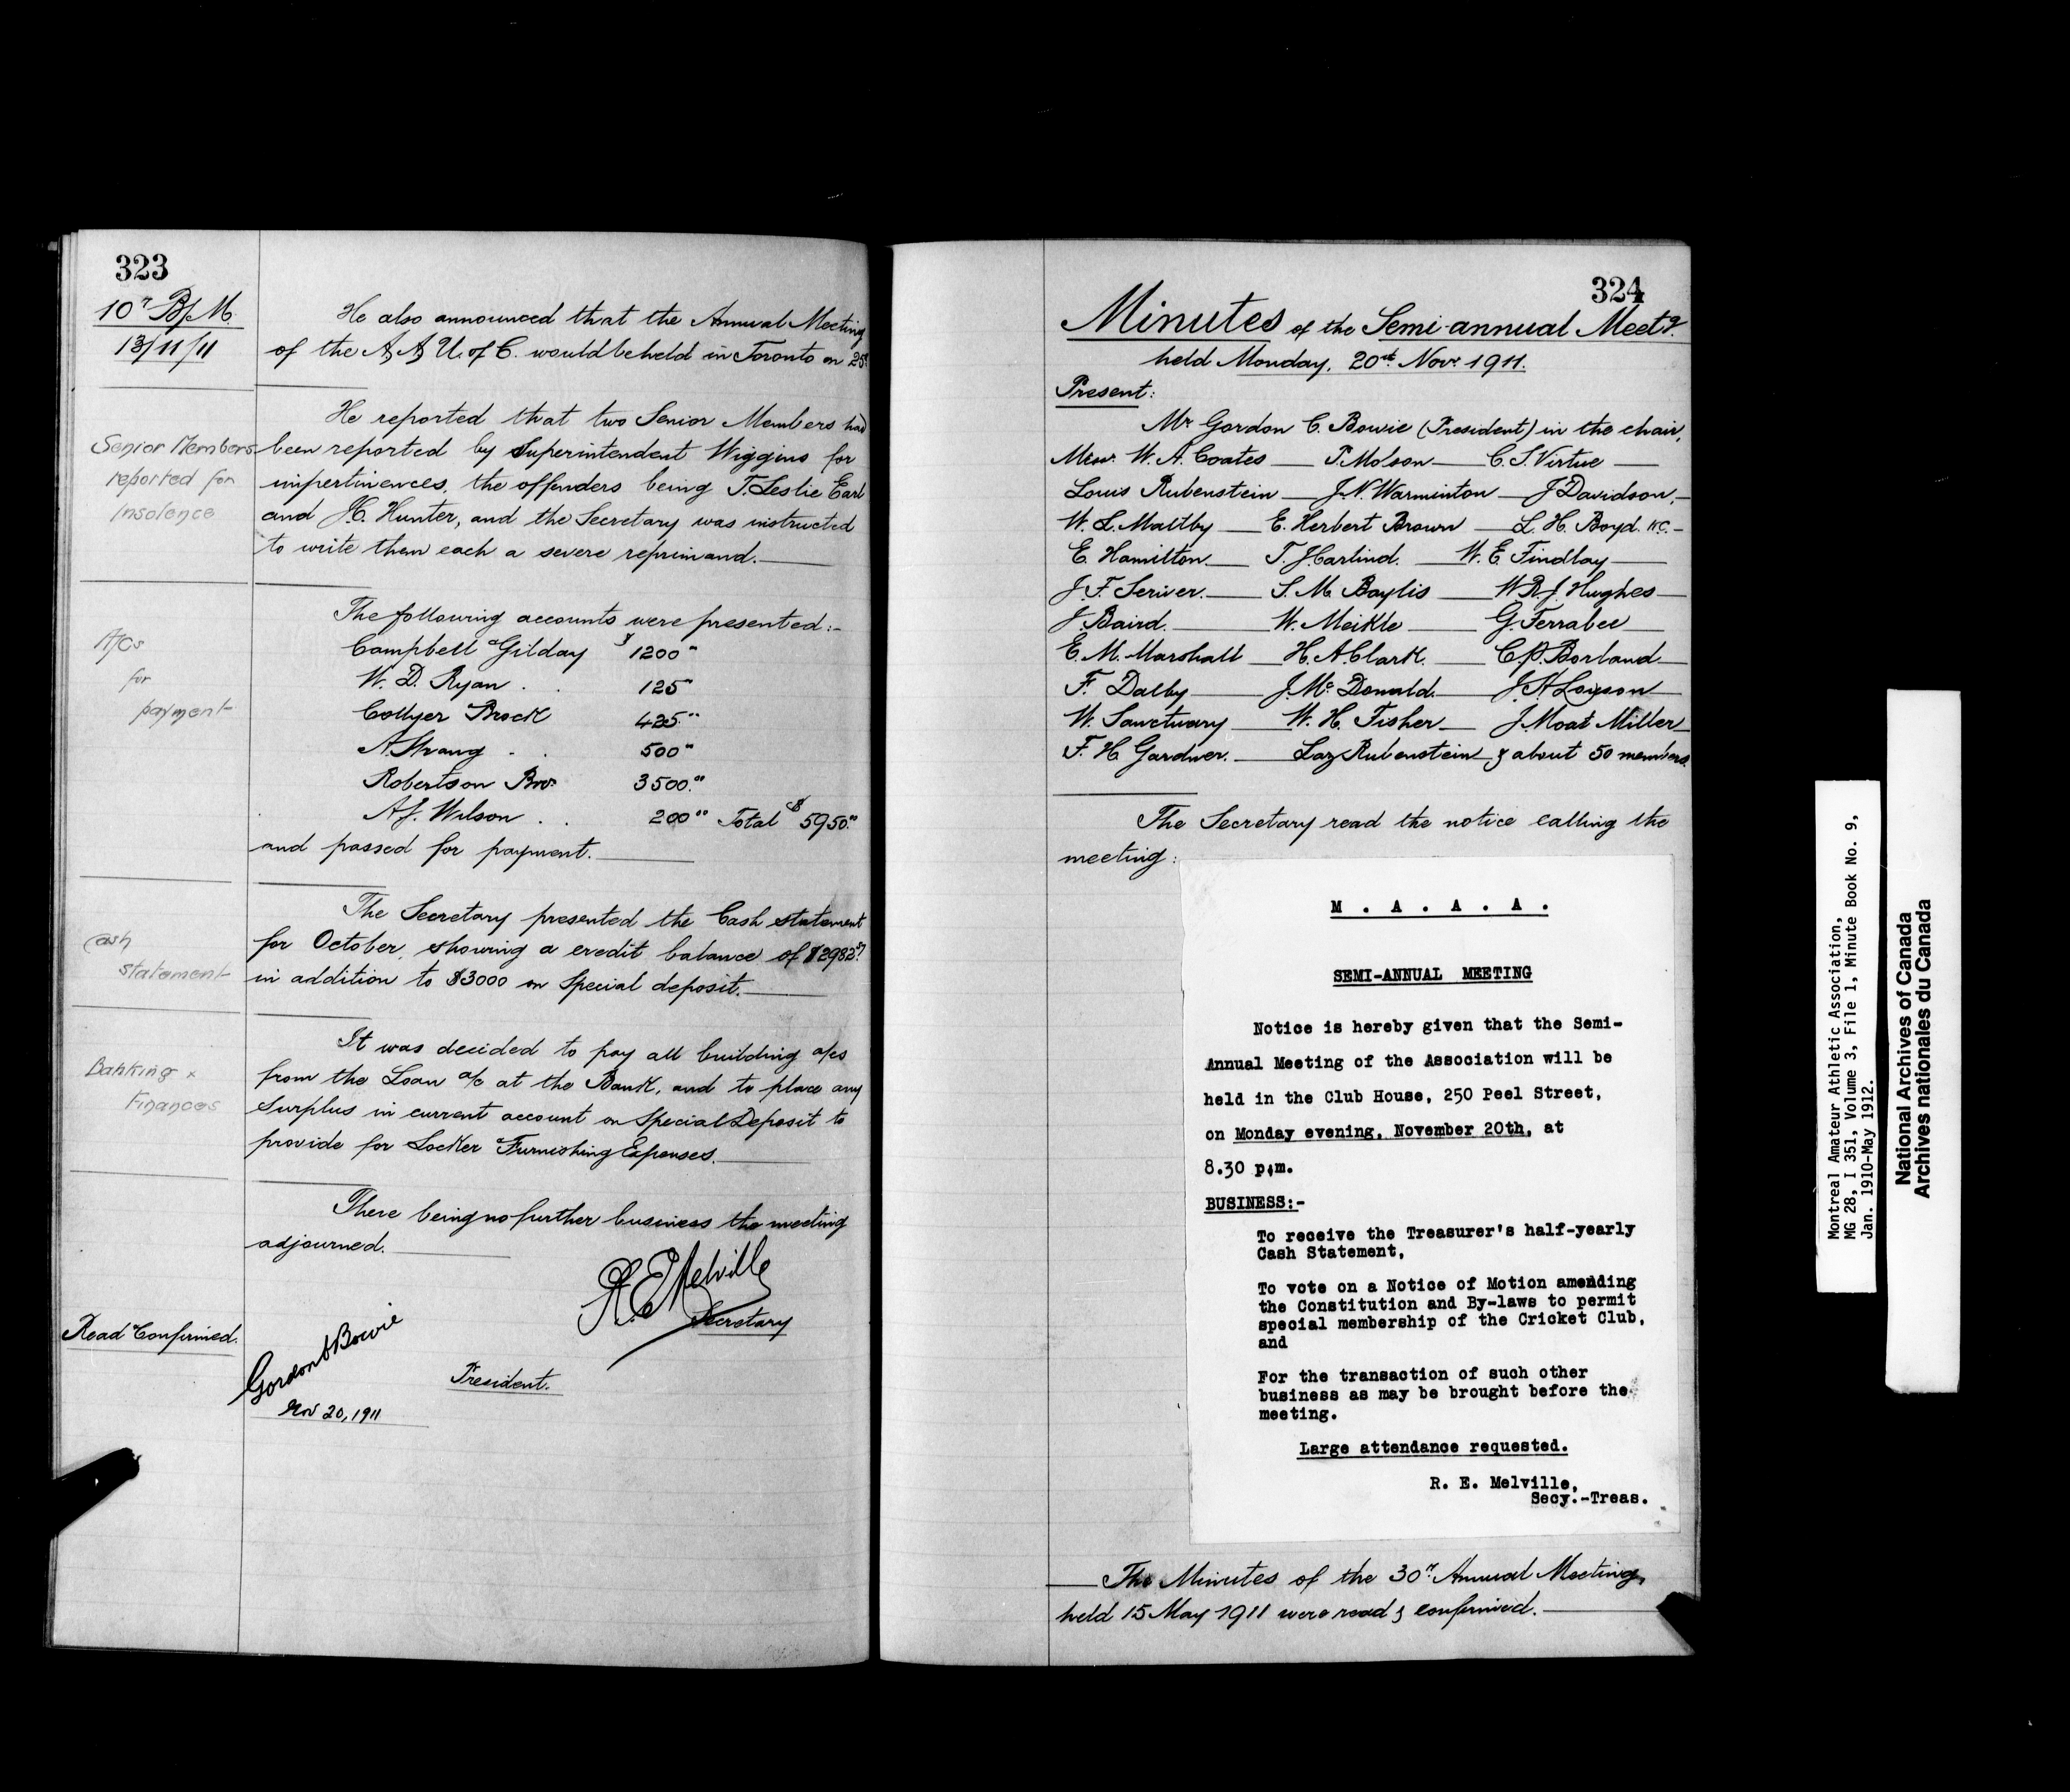 323
10th B/M.
13/11/11
He also announced that the Annual Meeting
of the A A U. of C. would be held in Toronto on 25th
Senior Members
reported for
insolence
He reported that two Senior Members had
been reported by Superintendent Wiggins for
impertinences, the offenders being T. Leslie Earl
and J.C. Hunter, and the Secretary was instructed
to write them each a severe reprimand.
A/Cs
for
payment
The following accounts were presented:-
Campbell & Gilday $ 1200 "
W. D. Ryan . . 125 "
Collyer & Brock 425 ..
A. Strang . . 500 "
Robertson Bros. 3500.00
A.J. Wilson . . 200 00 Total $ 5950.00
and passed for payment.
Cash
statement
The Secretary presented the Cash statement
for October, showing a credit balance of $2982.
in addition to $3000 on Special deposit.
Banking &
Finances
It was decided to pay all building a/cs
from the Loan a/c at the Bank, and to place any
surplus in current account on Special Deposit to
provide for Locker & Furnishing Expenses.
There being no further business the meeting
adjourned.
R. E. Melville
Secretary
Read & Confirmed.
Gordon C Bowie
President.
Nov 20, 1911
324
Minutes of the Semi-annual Meetg.
held Monday, 20th Novr. 1911.
Present:
Mr Gordon C. Bowie (President) in the chair,
Messrs. W. A. Coates — T. Molson — C. S. Virtue —
Louis Rubenstein — J. N. Warminton — J Davidson, —
W. L. Maltby — E. Herbert Brown — L. H. Boyd. K.C. —
E. Hamilton — T. J. Carlind. — W. E. Findlay —
J. F. Scriver. — S. M. Baylis — W. R. J. Hughes —
J. Baird. — W. Meikle — G. Ferrabee —
E. M. Marshall — H. A. Clark. — C. P. Borland. —
F. Dalby — J. McDonald. — J. A. Lowson —
W. Sanctuary — W. H. Fisher — J. Moat Miller —
F. H. Gardner. — Laz Rubenstein & about 50 members.
The Secretary read the notice calling the
meeting:
M . A . A . A .
SEMI-ANNUAL MEETING
Notice is hereby given that the Semi-
Annual Meeting of the Association will be
held in the Club House, 250 Peel Street,
on Monday evening, November 20th, at
8.30 p.m.
BUSINESS:-
To receive the Treasurer's half-yearly
Cash Statement,
To vote on a Notice of Motion amending
the Constitution and By-laws to permit
special membership of the Cricket Club,
and
For the transaction of such other
business as may be brought before the
meeting.
Large attendance requested.
R. E. Melville,
Secy.-Treas.
The Minutes of the 30th. Annual Meeting,
held 15 May 1911 were read & confirmed.
Montreal Amateur Athletic Association,
MG 28, I 351, Volume 3, File 1, Minute Book No. 9,
Jan. 1910-May 1912.
National Archives of Canada
Archives nationales du Canada